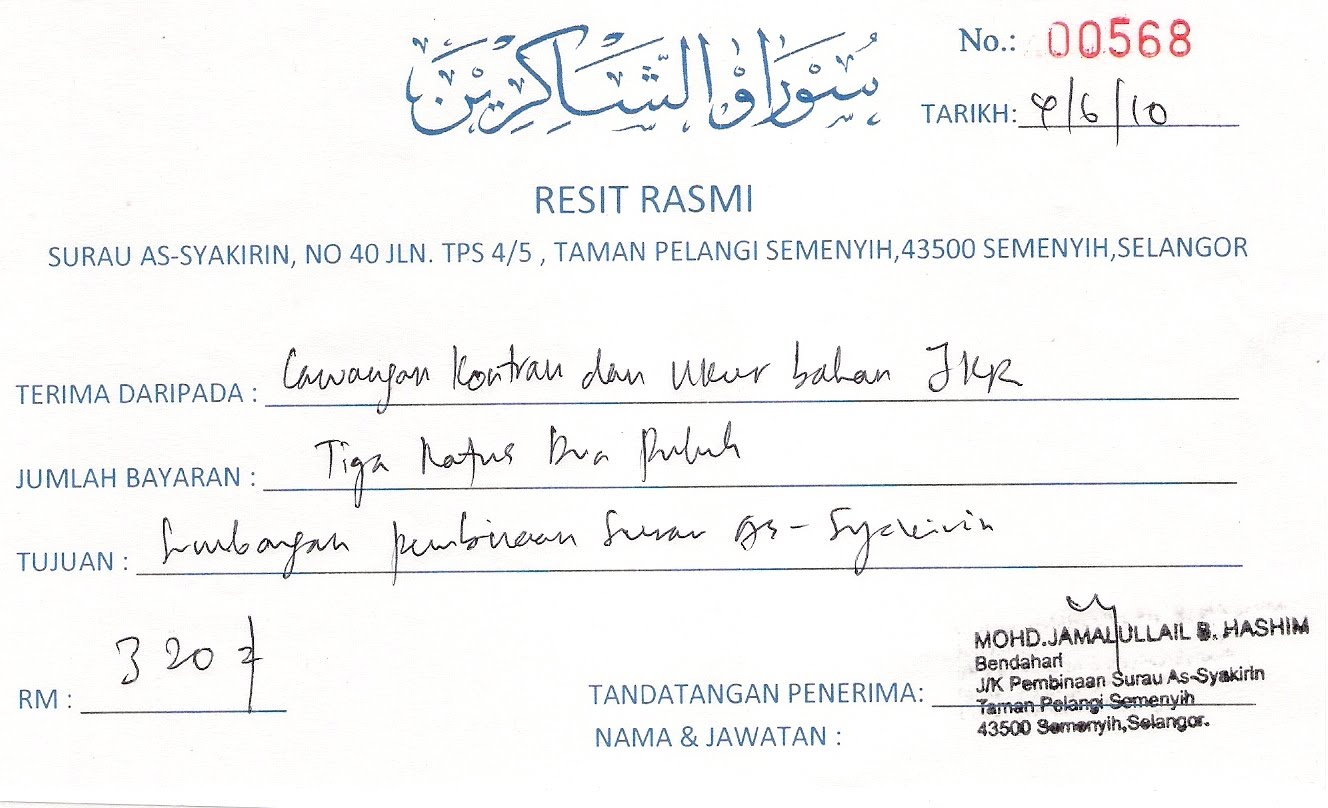 سوراو الشاكرين
No.: 00568
TARIKH: 4/6/10
RESIT RASMI
SURAU AS-SYAKIRIN, NO 40 JLN. TPS 4/5 , TAMAN PELANGI SEMENYIH,43500 SEMENYIH,SELANGOR
TERIMA DARIPADA : Cawangan Kontrak dan Ukur bahan JKR
JUMLAH BAYARAN : Tiga Ratus Dua Puluh
TUJUAN : Sumbangan pembinaan Surau As-Syakirin
RM : 320
TANDATANGAN PENERIMA:
NAMA & JAWATAN :
MOHD.JAMALULLAIL B. HASHIM
Bendahari
J/K Pembinaan Surau As-Syakirin
Taman Pelangi Semenyih
43500 Semenyih,Selangor.